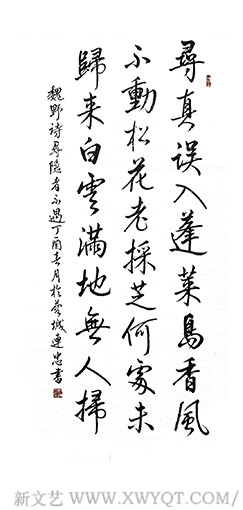 尋真誤入蓬萊島香風
不動松花老採芝何處未
歸来白雲滿地無人掃
魏野诗尋隐者不遇丁酉春月於蓉城連忠書
新文艺 WWW.XWYQT.COM/